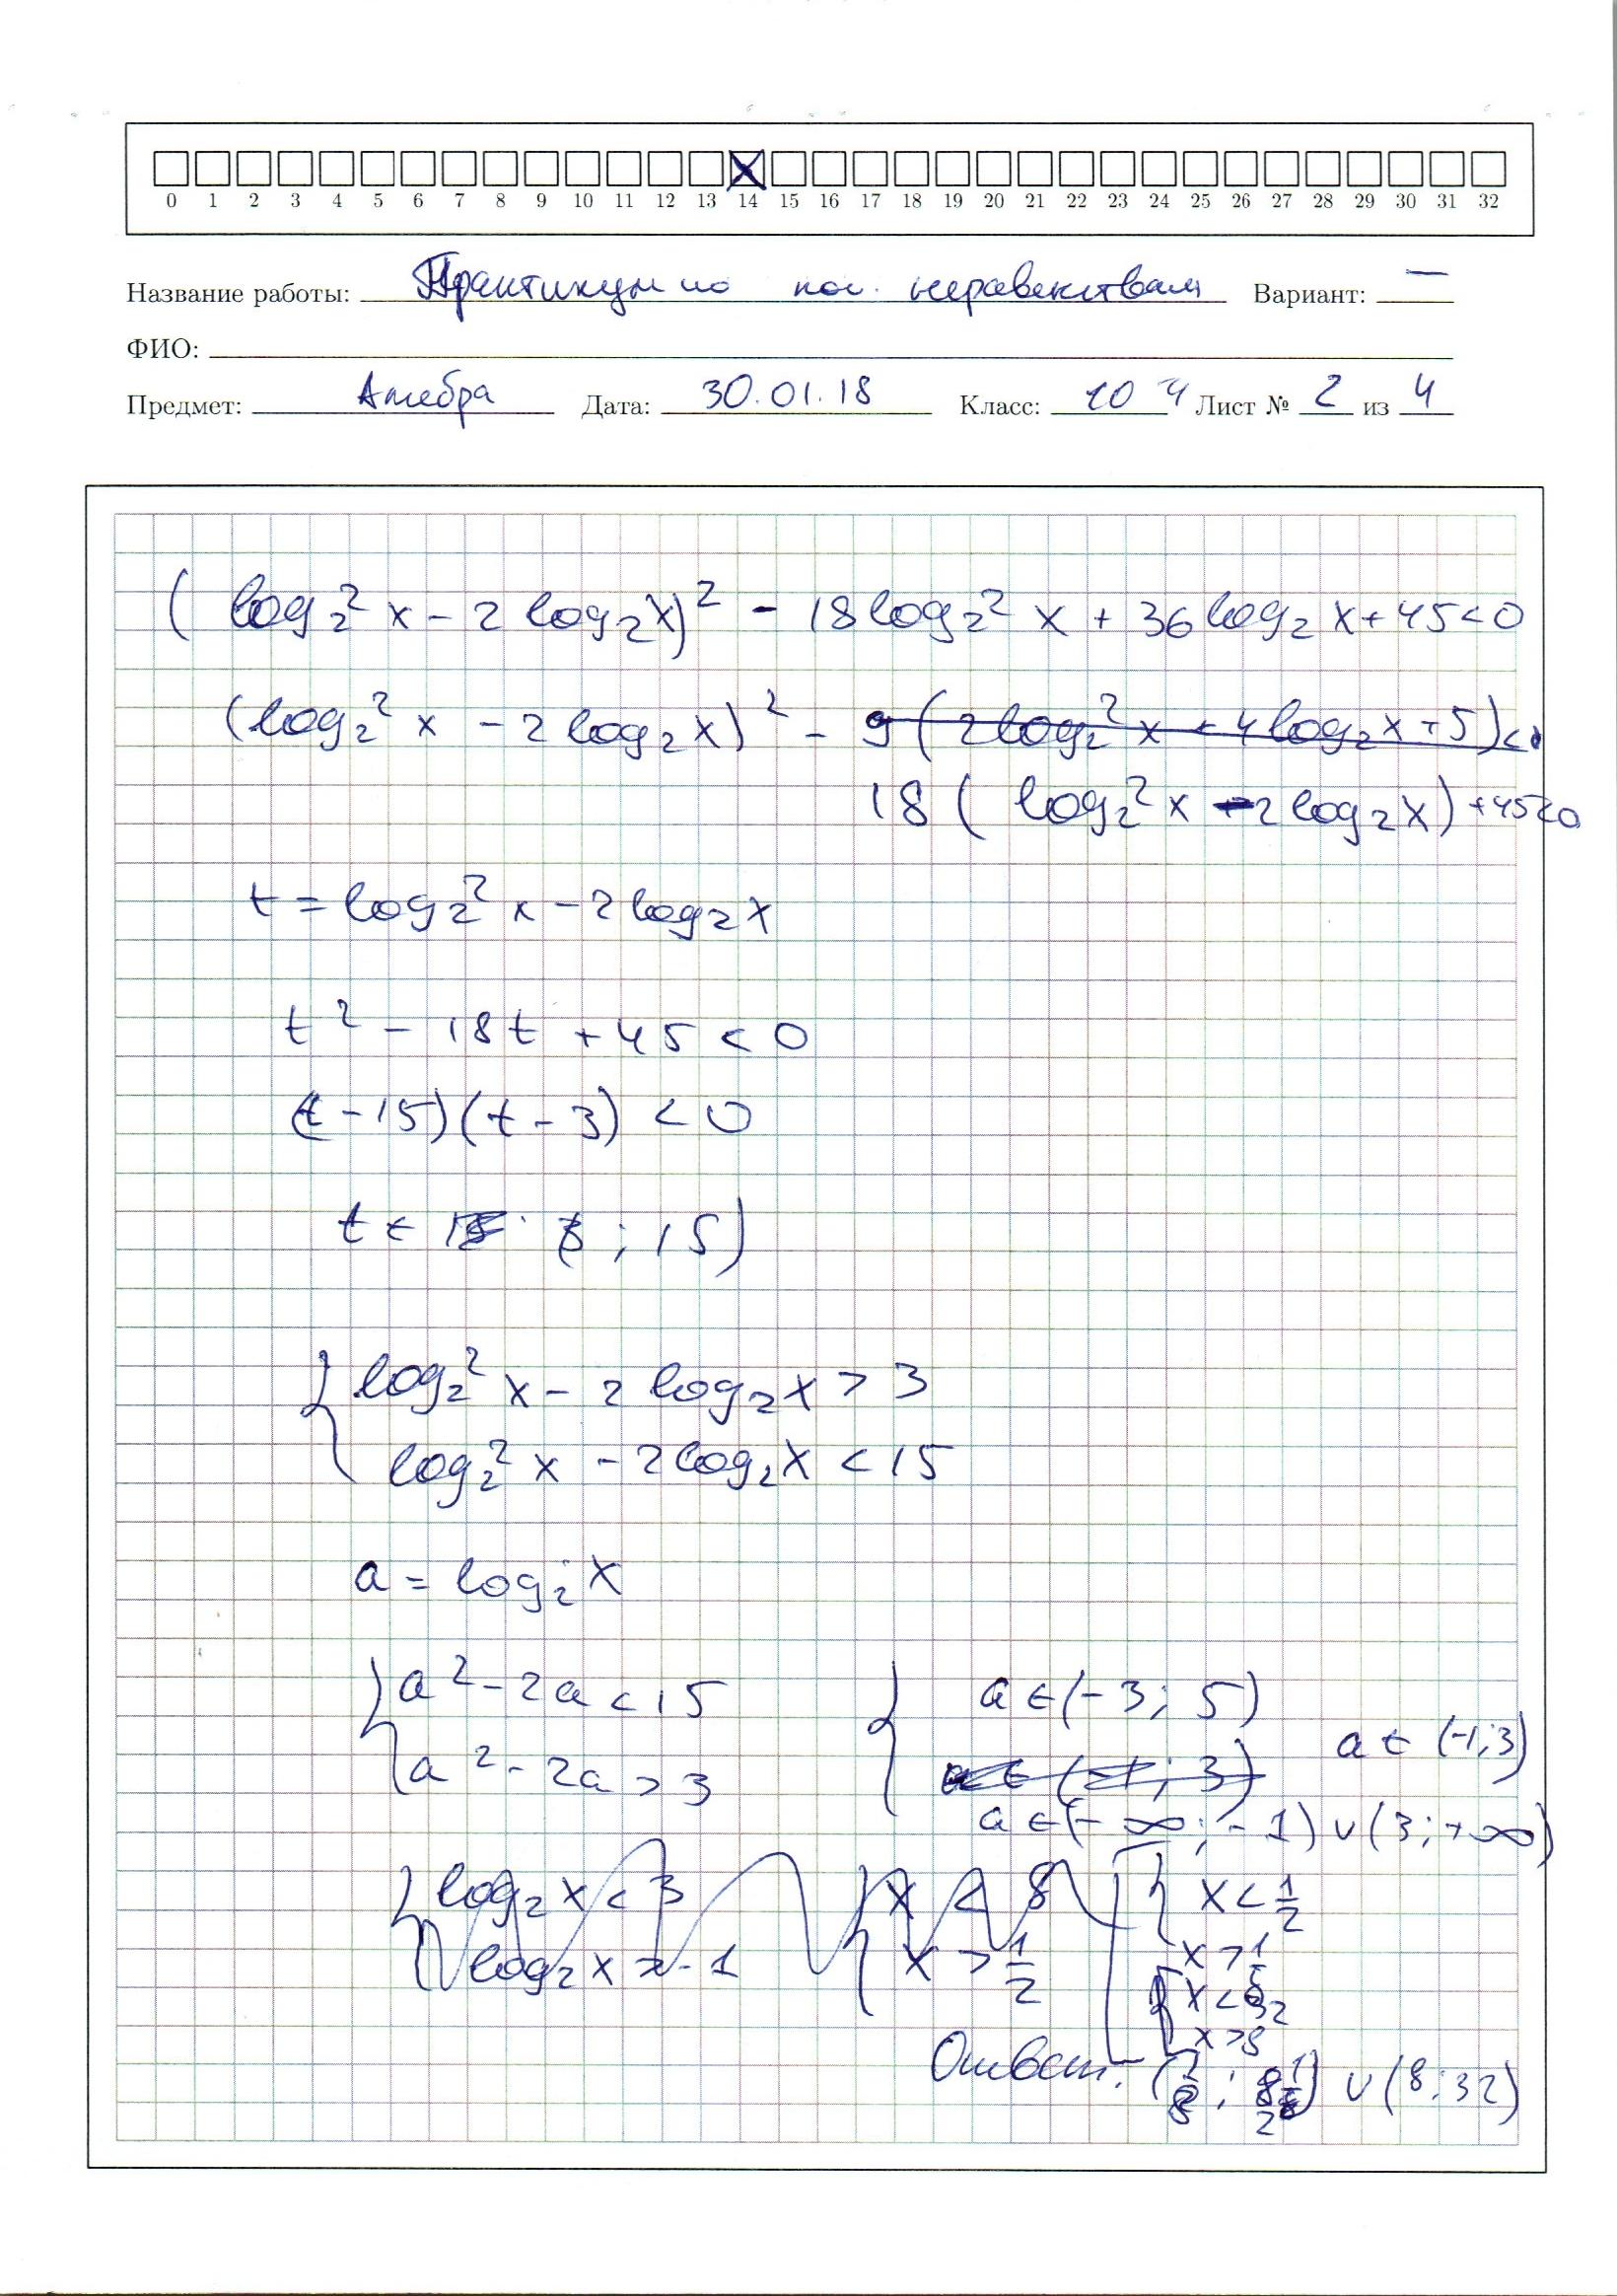 0 1 2 3 4 5 6 7 8 9 10 11 12 13 14 15 16 17 18 19 20 21 22 23 24 25 26 27 28 29 30 31 32
Название работы: Практикум по пок. неравенствам Вариант: —
ФИО:
Предмет: Алгебра Дата: 30.01.18 Класс: 10 Ч Лист № 2 из 4
( log₂² x - 2 log₂x)² - 18 log₂² x + 36 log₂ x + 45 < 0
(log₂² x - 2 log₂x)² - 9 (2log₂² x + 4log₂x + 5) < 0
18 ( log₂² x - 2 log₂x) + 45 < 0
t = log₂² x - 2 log₂x
t² - 18t + 45 < 0
(t - 15)(t - 3) < 0
t ∈ (3 ; 15)
log₂² x - 2 log₂x > 3
log₂² x - 2log₂x < 15
a = log₂ x
a² - 2a < 15 a ∈ (-3; 5)
a² - 2a > 3 a ∈ (-1; 3) a ∈ (-1; 3)
a ∈ (-∞; -1) ∪ (3; +∞)
log₂x < 3 x < 8 x < 1/2
log₂x > -1 x > 1/2 x >
x < 32
x > 8
Ответ: ( ; ) ∪ (8; 32)